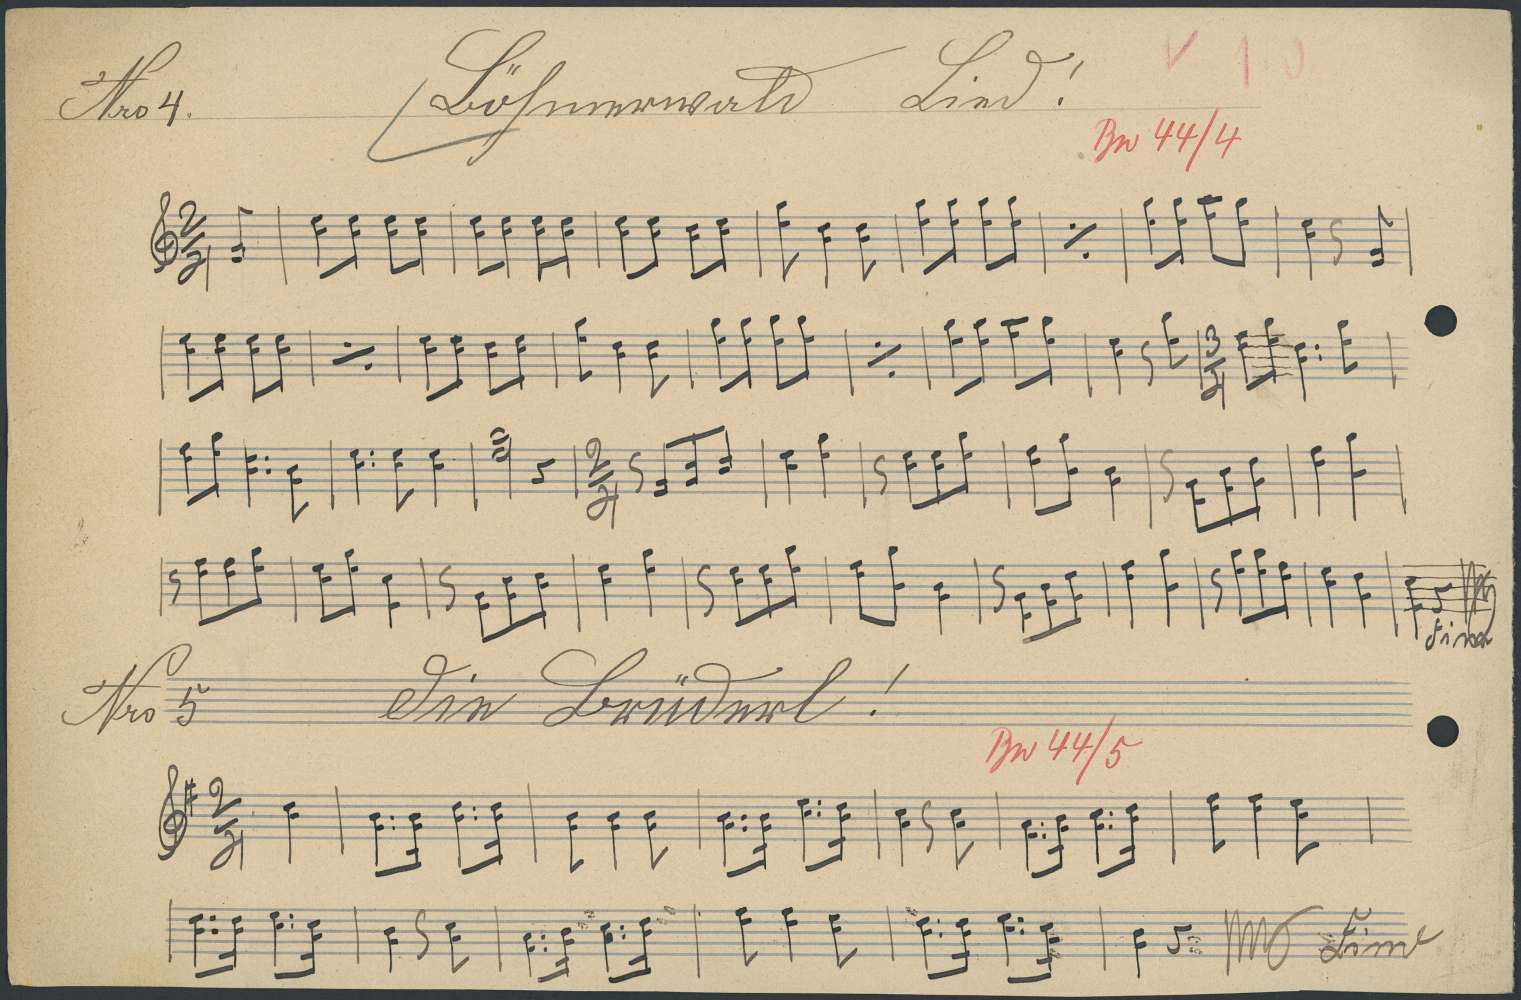 Nro 4. Böhmerwald Lied!
V 10
Bw 44/4
2/4
3/4
2/4
Fine
Nro 5 Die Brüderl!
Bw 44/5
2/4
Fine